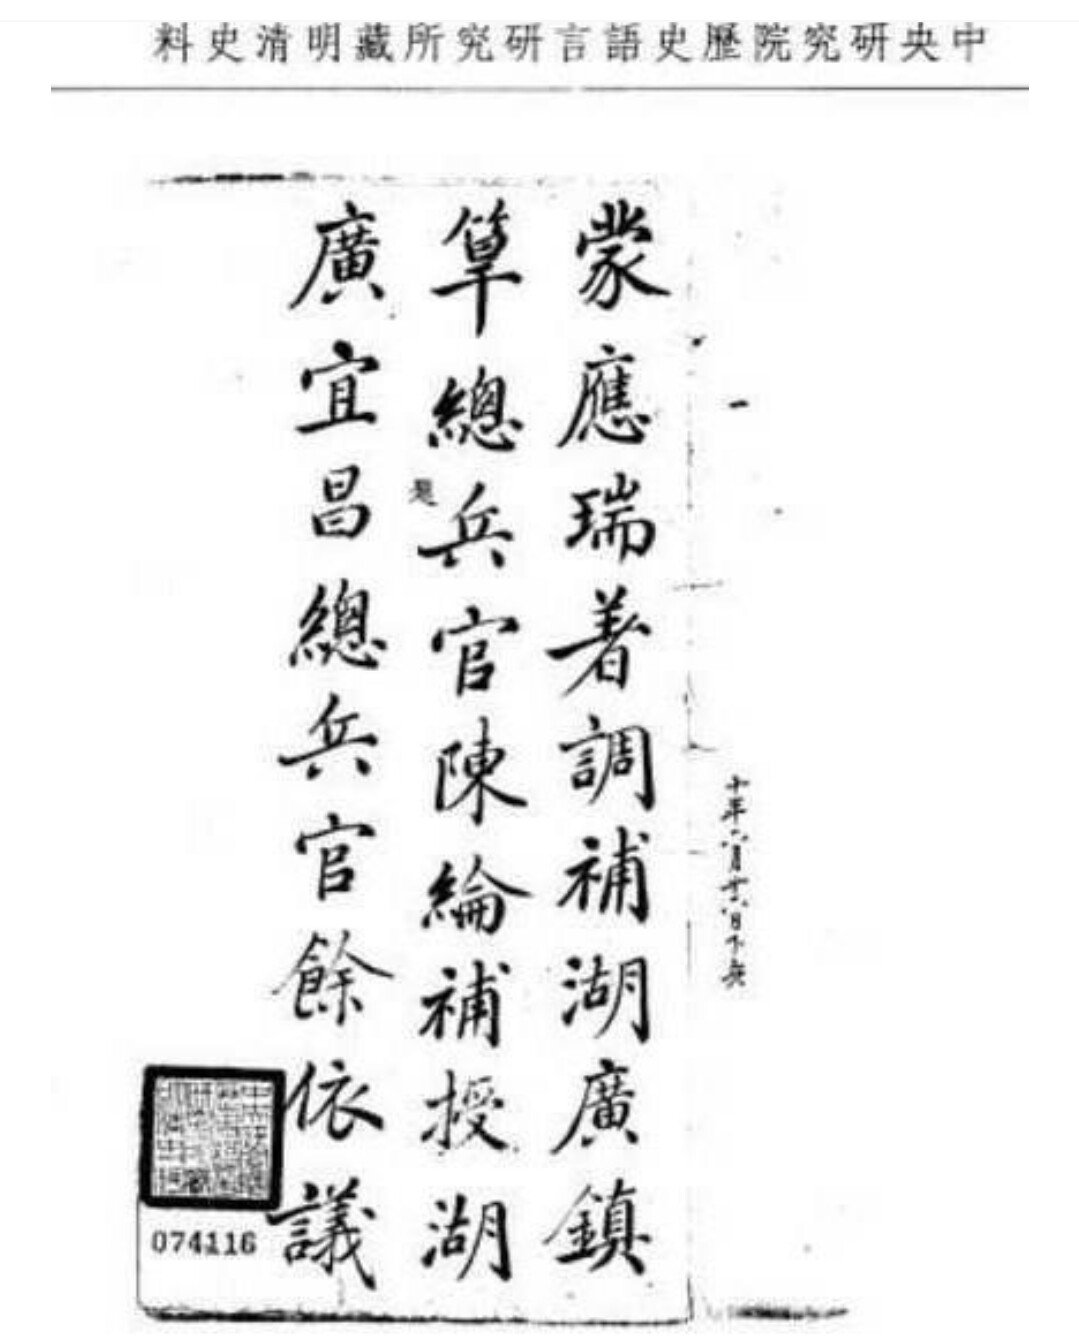 中央研究院歷史語言研究所藏明清史料
十年六月廿六日下兵
蒙應瑞著調補湖廣鎮
筸總兵官陳綸補授湖
是
廣宜昌總兵官餘依議
074116